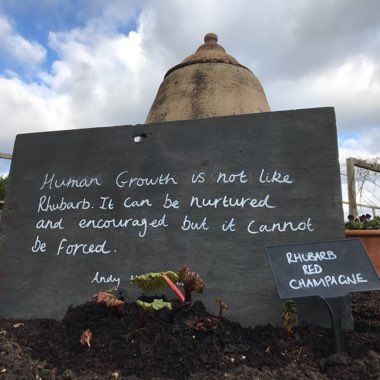 Human Growth is not like
Rhubarb. It can be nurtured
and encouraged but it cannot
be forced.
Andy
RHUBARB
RED
CHAMPAGNE